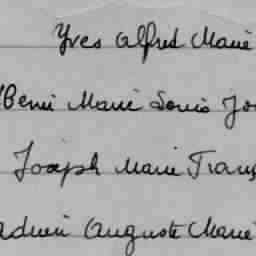 Yves Alfred Marie
Henri Marie Louis Jo
Joseph Marie Fran
Auguste Marie